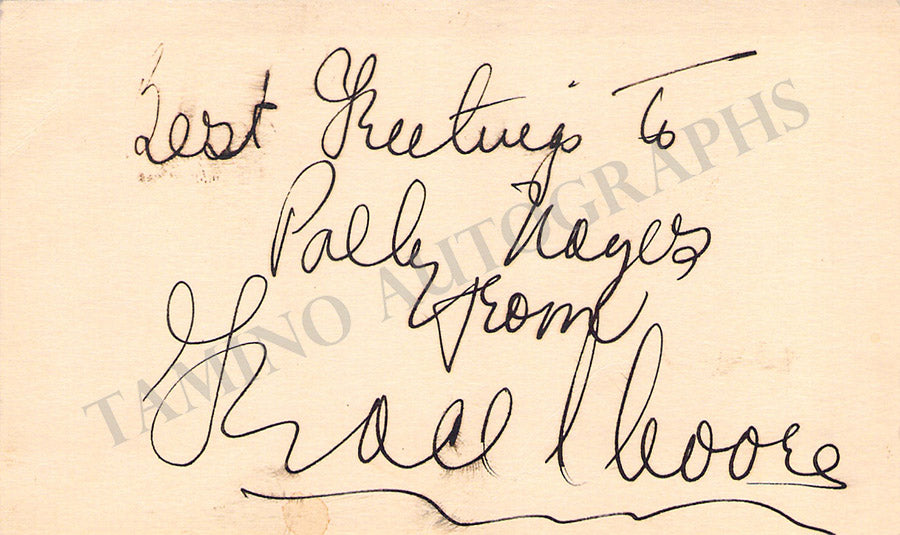 Best Greetings To
Polly Noyes
From
Grace Moore
TAMINO AUTOGRAPHS